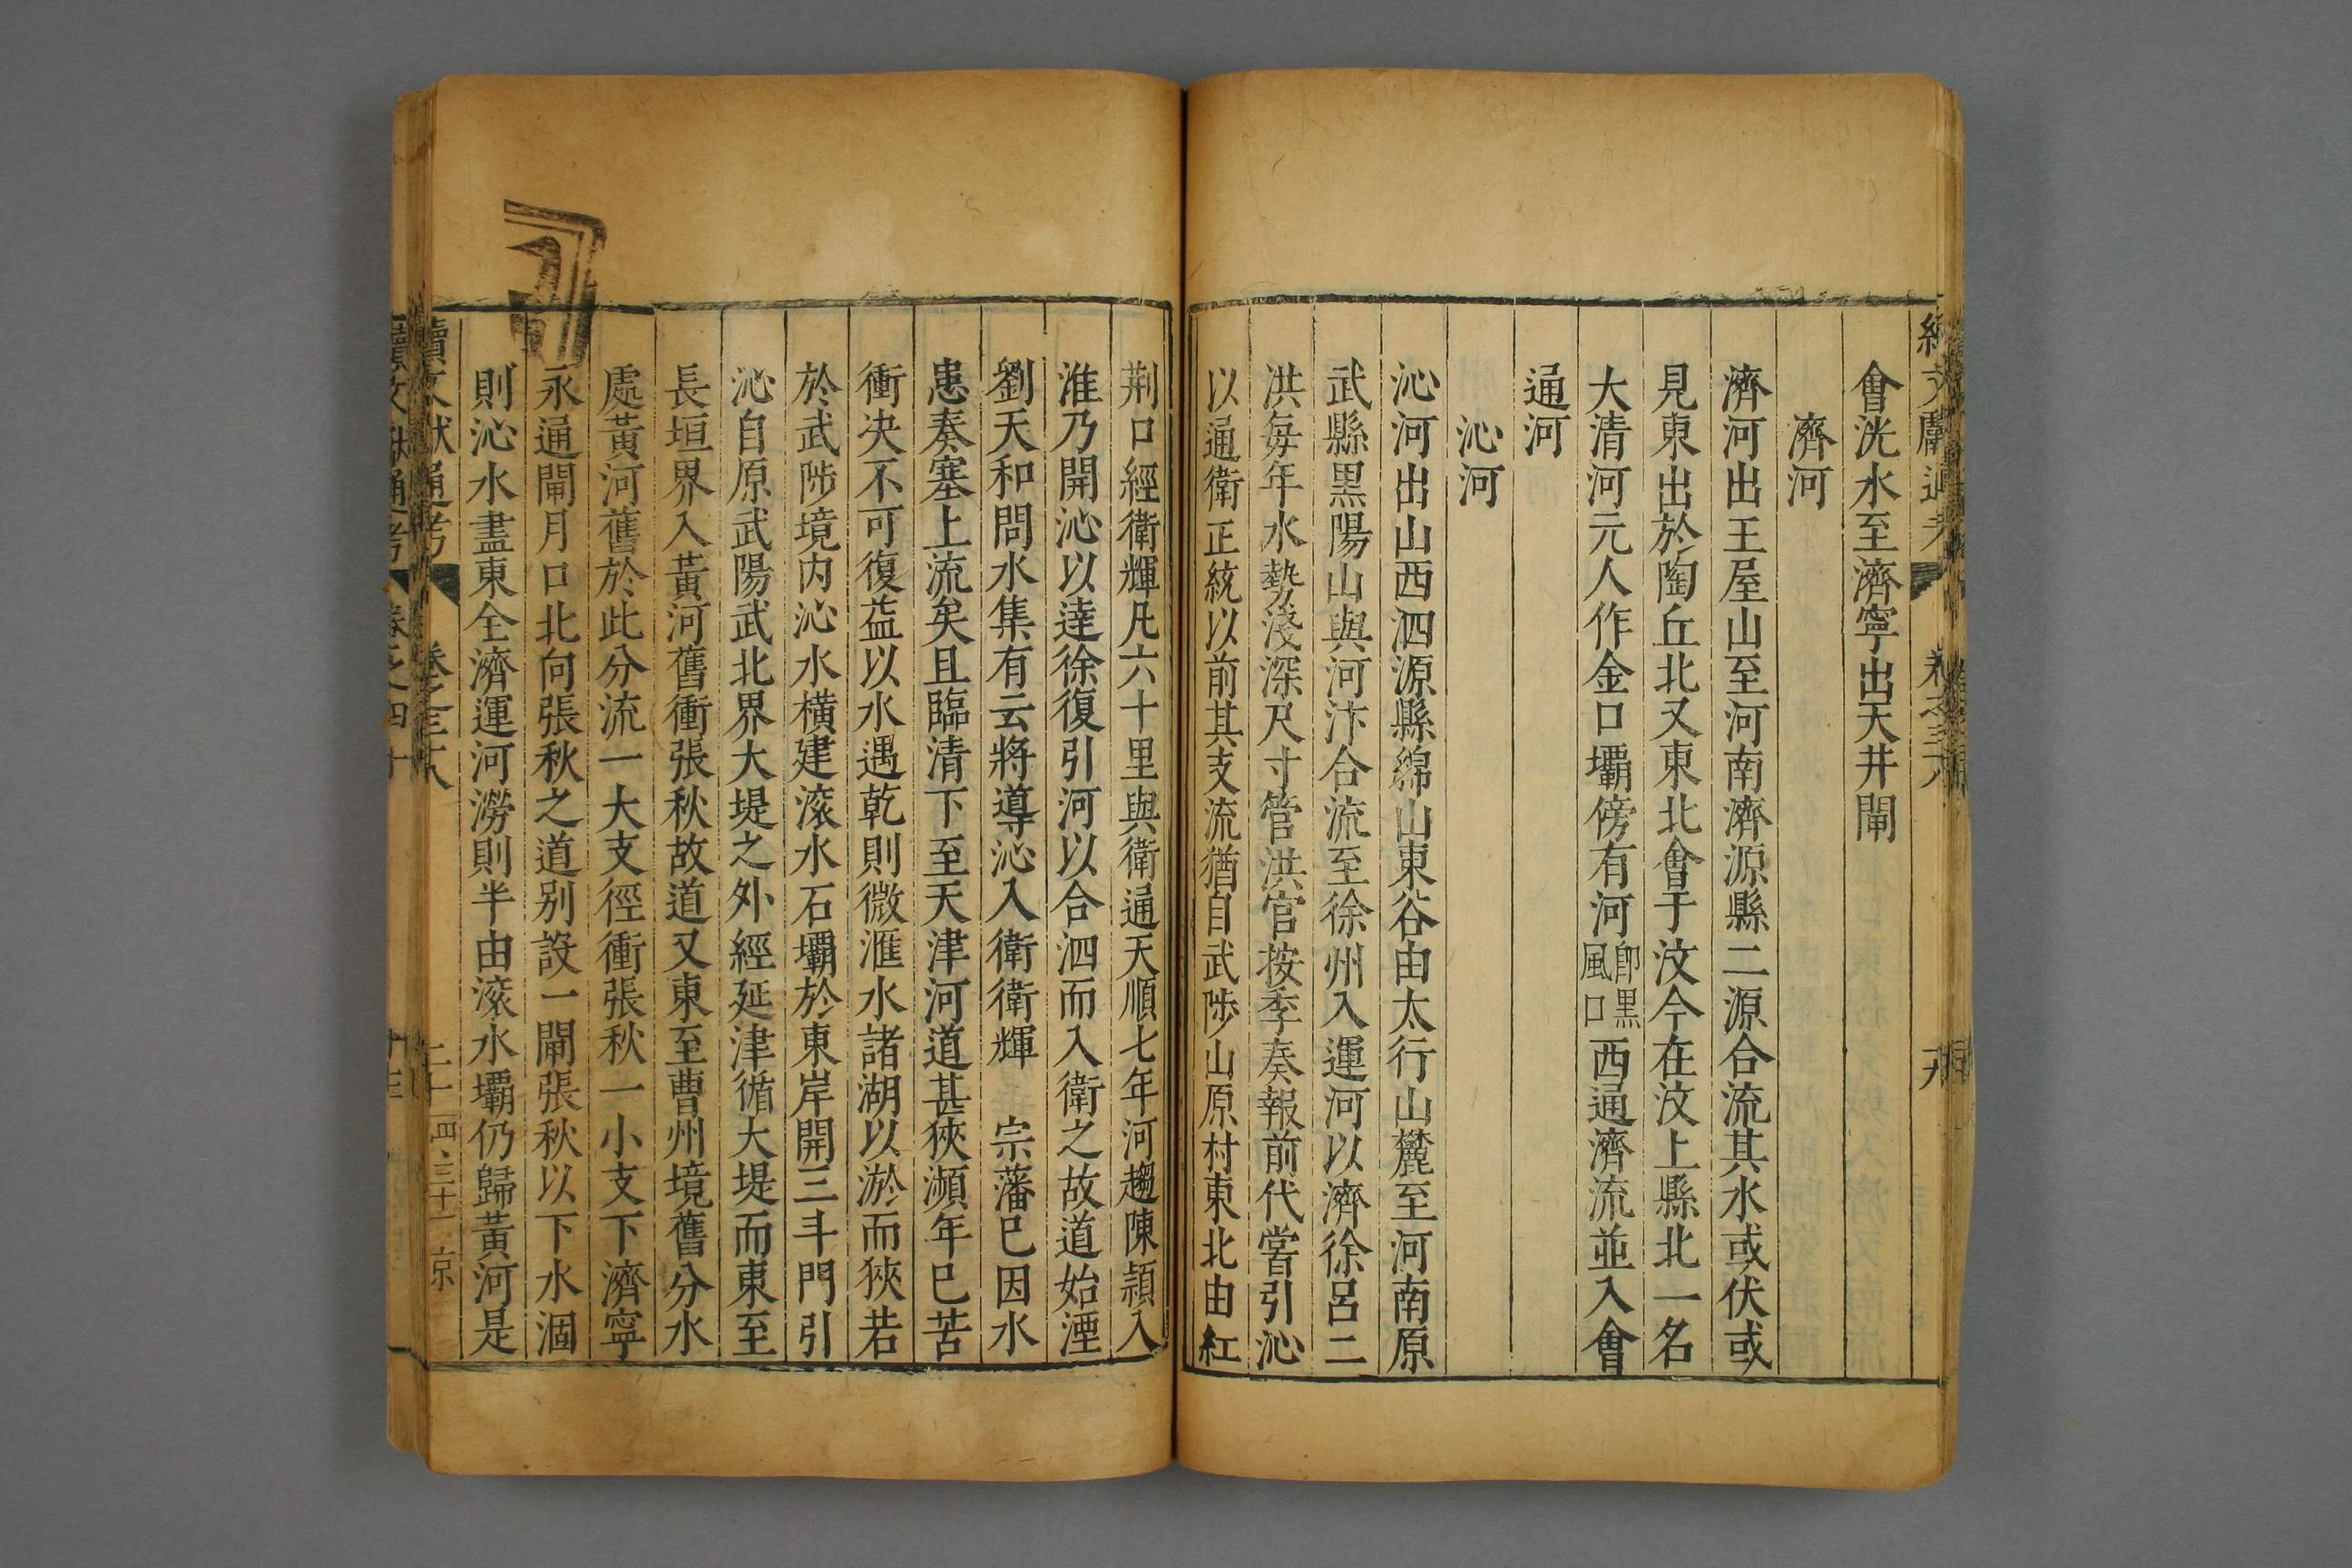 會洸水至濟寧出天井閘
濟河
濟河出王屋山至河南濟源縣二源合流其水或伏或
見東出於陶丘北又東北會于汶今在汶上縣北一名
大清河元人作金口壩傍有河即黑風口西通濟流並入會
通河
沁河
沁河出山西泗源縣綿山東谷由太行山麓至河南原
武縣黑陽山與河汴合流至徐州入運河以濟徐呂二
洪每年水勢淺深尺寸管洪官按季奏報前代嘗引沁
以通衛正統以前其支流猶自武陟山原村東北由紅
荆口經衛輝凡六十里與衛通天順七年河趨陳潁入
淮乃開沁以達徐復引河以合泗而入衛之故道始湮
劉天和問水集有云將導沁入衛衛輝 宗藩已因水
患奏塞上流矣且臨清下至天津河道甚狹瀕年已苦
衝决不可復益以水遇乾則微滙水諸湖以淤而狹若
於武陟境内沁水橫建滚水石壩於東岸開三斗門引
沁自原武陽武北界大堤之外經延津循大堤而東至
長垣界入黃河舊衝張秋故道又東至曹州境舊分水
處黃河舊於此分流一大支徑衝張秋一小支下濟寧
永通閘月口北向張秋之道别設一閘張秋以下水涸
則沁水盡東全濟運河澇則半由滚水壩仍歸黃河是
續文獻通考 卷之三十八